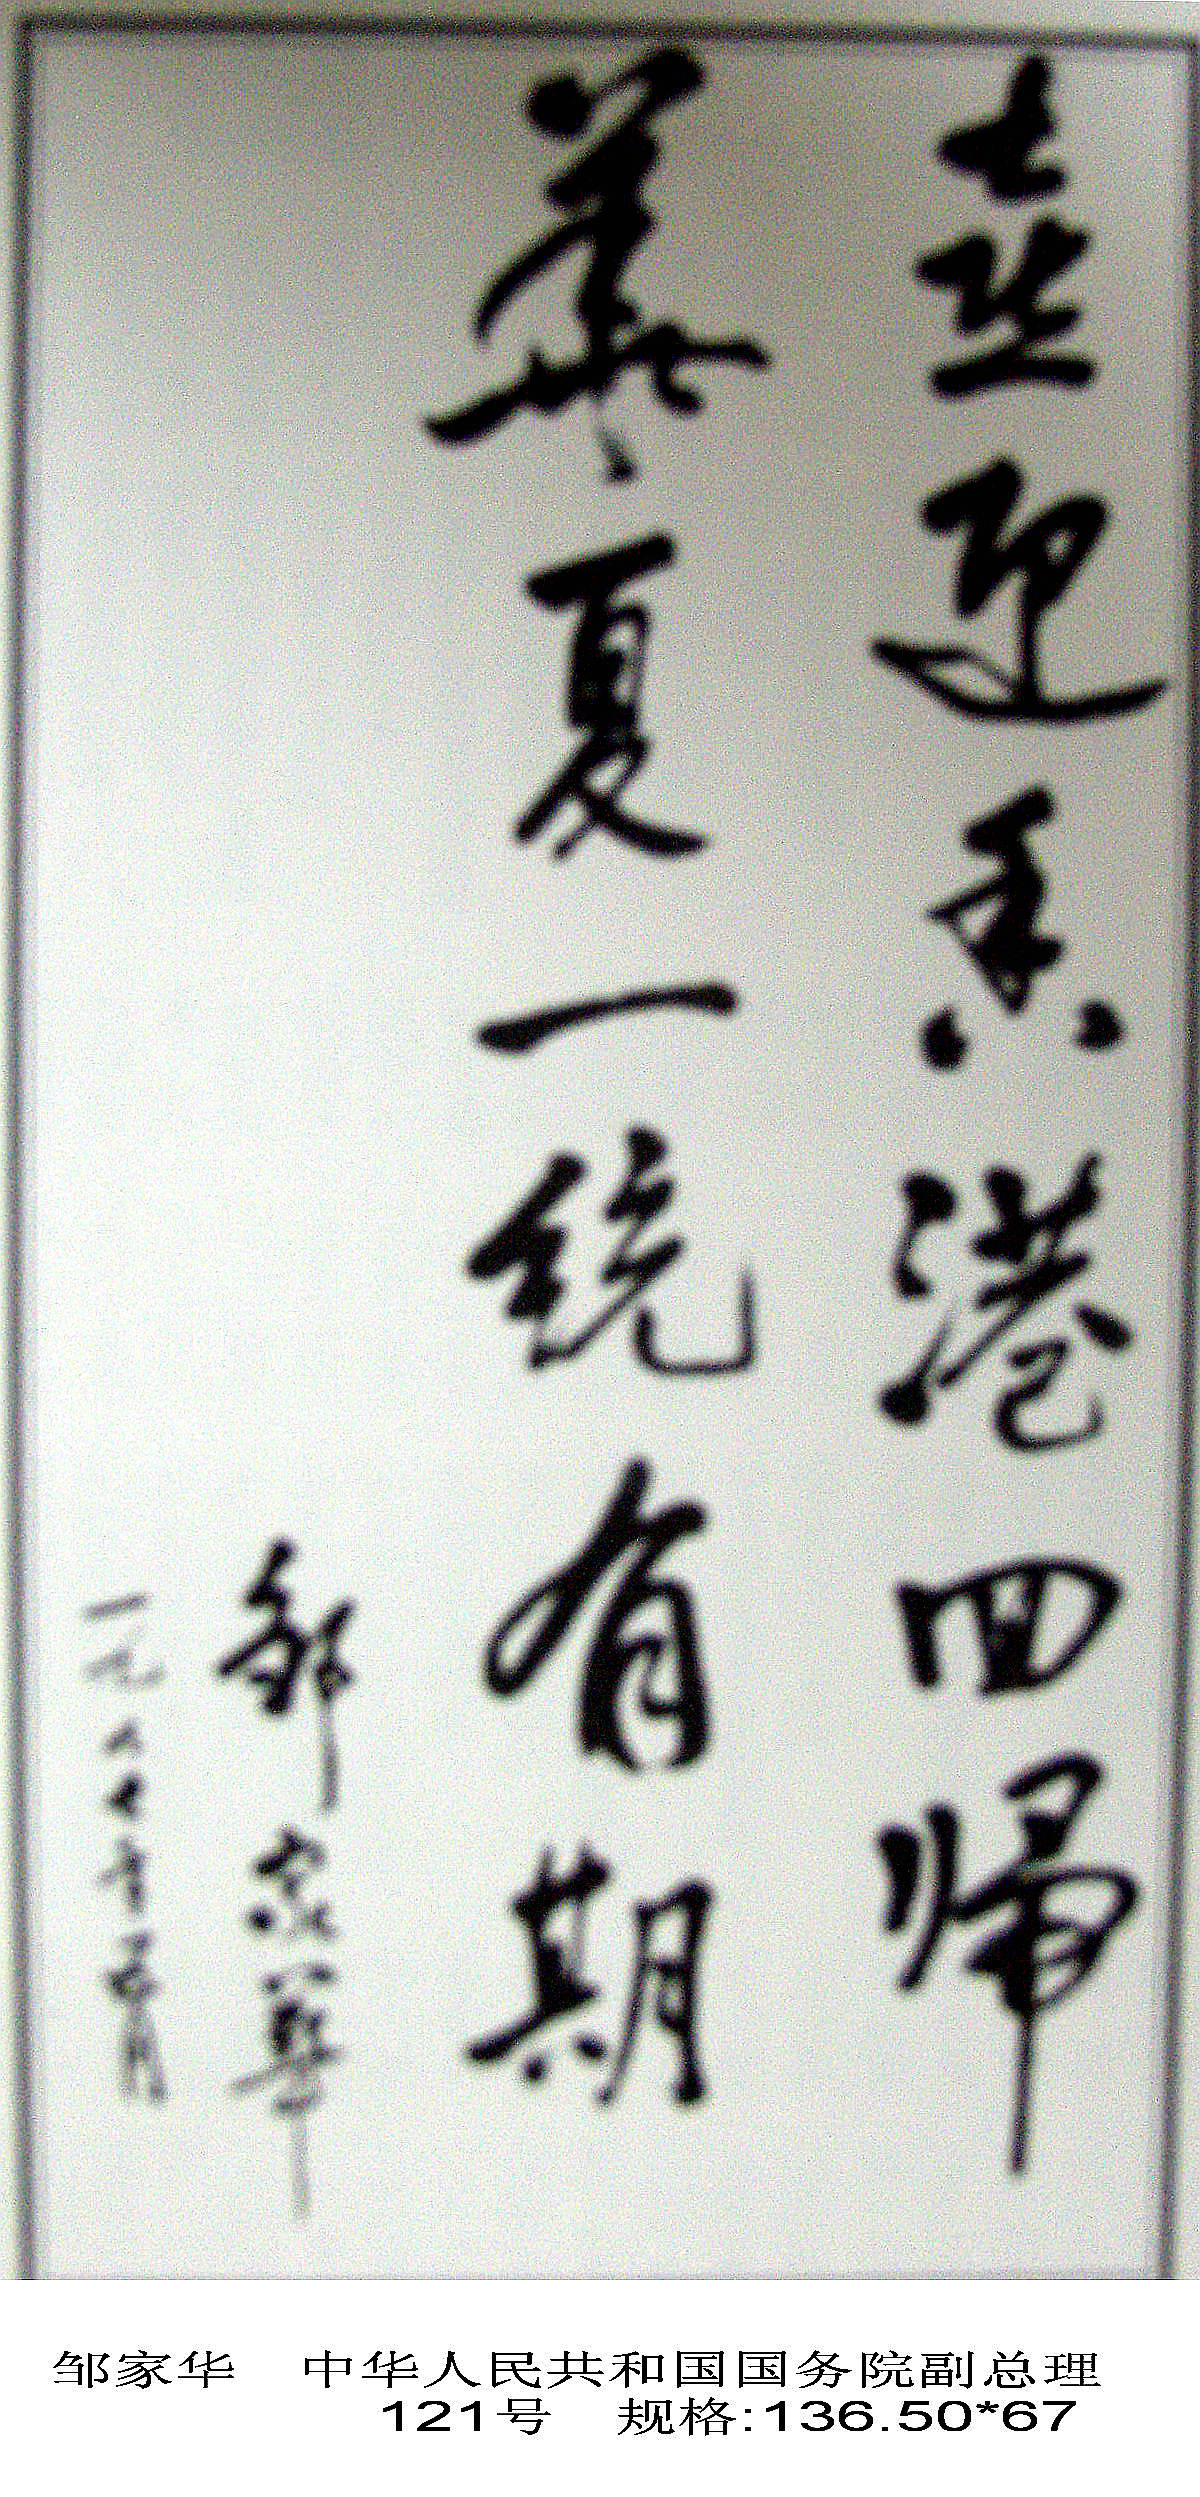 喜迎香港回归
华夏一统有期
邹家华
一九九七年五月
邹家华 中华人民共和国国务院副总理
121号 规格:136.50*67